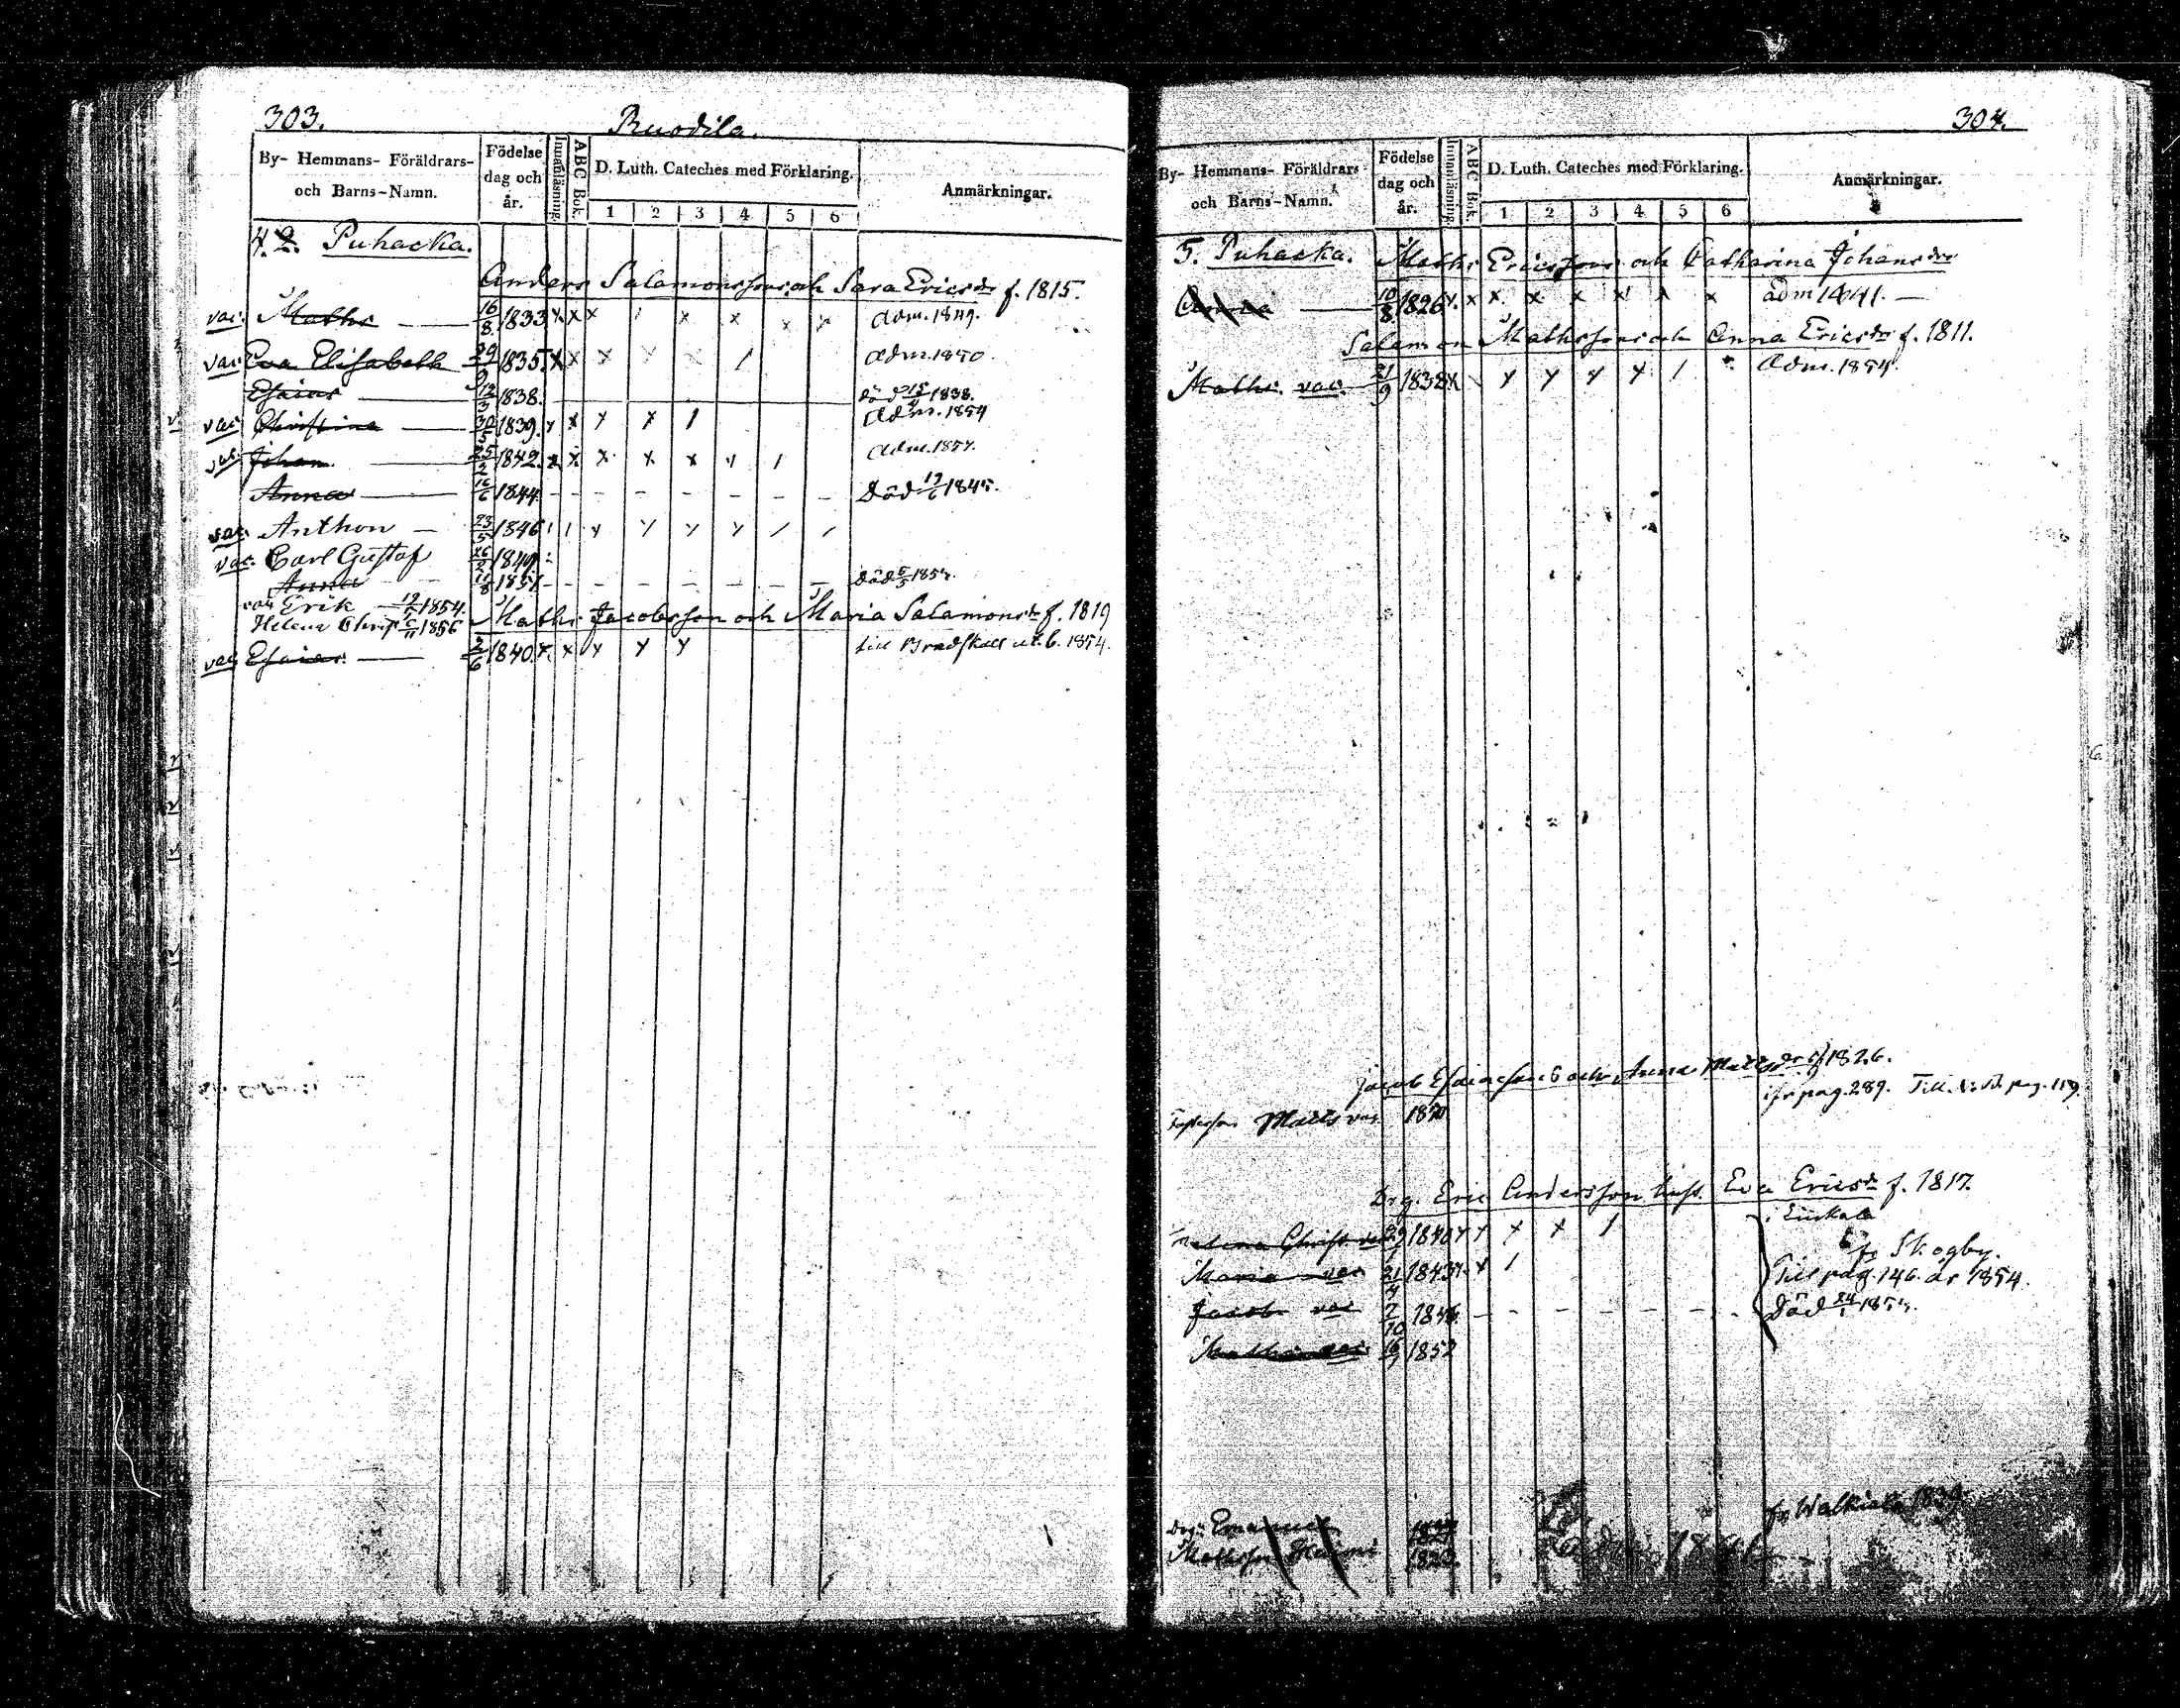 303.
Ruodila.
By- Hemmans- Föräldrars- och Barns-Namn.
Födelse dag och år.
Innanläsning.
ABC Bok.
D. Luth. Cateches med Förklaring.
1 2 3 4 5 6
Anmärkningar.
4. 2. Puhacka.
Anders Salamonsson och Sara Ericsdr f. 1815.
vac. Maths 16/8 1833 x x x x x adm. 1849.
vac. Eva Elisabeth 1835. x x x x x / adm. 1850.
Esaias 1838. död 1838.
vac. Christina 30/5 1839. x x x x / adm. 1854
vac. Johan 25/2 1842. x x x x x /
Anna 16/6 1844 - - - - - - - Död 1845.
vac. Anthon 23/5 1846
vac. Carl Gustaf 1849.
Anna 11/8 1851 - - - - - - - död
vac. Erik 1854.
Helena Christ. 1856
Maths Jacobsson och Maria Salamonsdr f. 1819
vac. Esaias 2/6 1840. x x x x x till 1854.
304.
By- Hemmans- Föräldrars- och Barns-Namn.
Födelse dag och år.
Innanläsning.
ABC Bok.
D. Luth. Cateches med Förklaring.
1 2 3 4 5 6
Anmärkningar.
5. Puhacka.
Maths Ericsson och Catharina Johansdr
Anna 10/8 1826 x. x x x x x x x adm 1841.
Salamon Mathsson och Anna Ericsdr f. 1811.
Maths. vac. 21/9 1838 adm. 1854.
Jacob Esaiasson och Anna Mattsdr f 1826.
ifr pag. 289. Till pag. 119.
Fosterson Matts vac. 1850
Drg. Eric Andersson hust. Eva Ericsdr f. 1817.
fr Skogby.
Christ. vac. 1840 x x x x /
Maria vac 21/4 1843 x x /
Till pag. 146. år 1854.
Jacob vac 7/10 1846 - - - - - - Död
1852
Drg. Emanuel
fr Walkiala 1839.
Mathsson 1823.